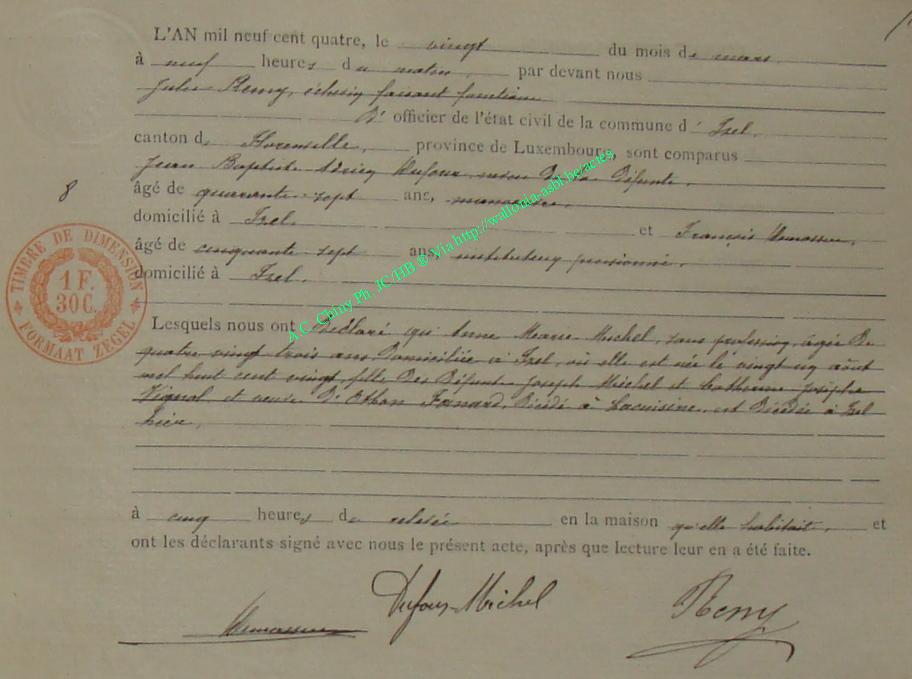 L'AN mil neuf cent quatre, le vingt du mois de mars
à neuf heures du matin, par devant nous
Jules Remy, échevin faisant fonctions
d' officier de l'état civil de la commune d' Izel,
canton de Florenville, province de Luxembourg, sont comparus
Jean Baptiste Dufour, de la défunte,
8 âgé de quarante-sept ans,
domicilié à Izel et François
âgé de cinquante-sept ans, instituteur pensionné,
domicilié à Izel.
TIMBRE DE DIMENSION
1 F. 30 C.
FORMAAT ZEGEL
Lesquels nous ont déclaré que Anne Marie Michel, sans profession, âgée de
quatre-vingt trois ans, domiciliée à Izel, où elle est née le vingt-un août
mil huit cent vingt, fille des défunts Joseph Michel et Catherine Josèphe
Vignol et veuve d'Othon Fonard, décédé à Lacuisine, est décédée à Izel
hier,
à cinq heures de relevée en la maison qu'elle habitait, et
ont les déclarants signé avec nous le présent acte, après que lecture leur en a été faite.
Dufour-Michel Remy
A.C. Chiny Ph. JC/HB ® Via http://wallonia-asbl.be/actes